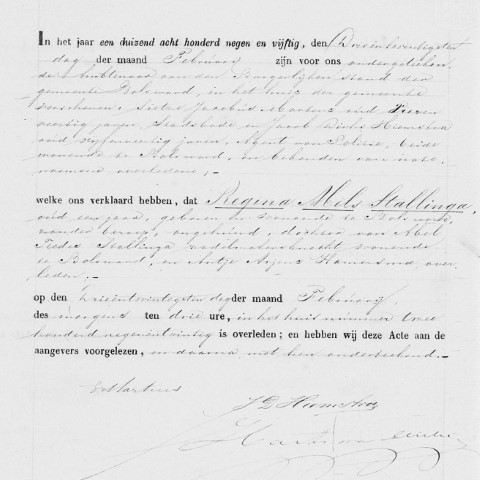 In het jaar een duizend acht honderd negen en vijftig, den Drieëntwintigsten
dag der maand Februarij zijn voor ons ondergeteekende
de Ambtenaar van den Burgerlijken stand der
gemeente Bolsward, in het huis der gemeente
verschenen, Sietse Jacobus Martens oud
veertig jaren, Stadsbode en Jacob Dirks Hiemstra
oud vijfenveertig jaren, Agent van Policie, beide
wonende te Bolsward, en bekenden van nabe-
noemde overledene;
welke ons verklaard hebben, dat Regina Abels Stallinga,
oud een jaar, geboren en wonende te Bolsward,
zonder beroep, ongehuwd, dochter van Abel
Stallinga wonende
te Bolsward, en Antje Hamersma, over-
leden;
op den Drieëntwintigsten dag der maand Februarij,
des morgens ten drie ure, in het huis nummer twee
honderd negenentwintig is overleden; en hebben wij deze Acte aan de
aangevers voorgelezen, en daarna met hen onderteekend.
S Martens
J D Hiemstra